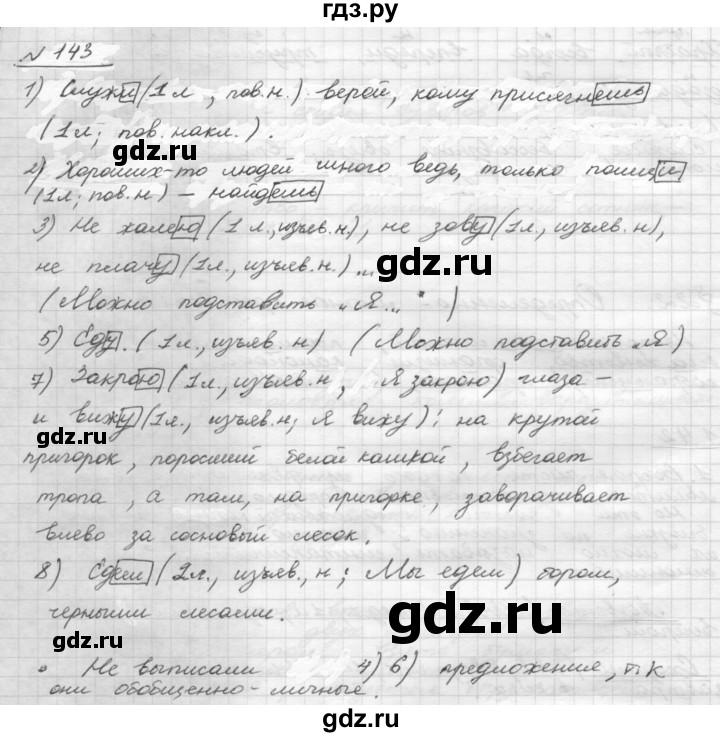 гдз.ру
№ 143
1) Служи (1 л , пов.н.) верой, кому присягнешь
(1л; пов. накл.).
2) Хороших-то людей много ведь, только поищи
(1л; пов.н) – найдешь
3) Не жалею (1 л., изъяв.н.), не зову (1л., изъяв.н),
не плачу (1л., изъяв.н.)...
(Можно подставить „Я... ")
gdz.ru gdz.ru
5) Еду. (1л., изъяв.н) (Можно подставить „Я)
7) Закрою (1л., изъяв.н , Я закрою) глаза –
и вижу (1л., изъяв.н; Я вижу): на крутой
gdz.ru gdz.ru
пригорок, поросший белой кашкой, взбегает
тропа, а там, на пригорке, заворачивает
влево за сосновый лесок.
gdz.ru
8) Едем (2л., изъяв., н; Мы едем) бором,
черными лесами.
gdz.ru
• Не выписали 4) 6) предложения, т к
они обобщенно-личные.
gdz.ru
gdz.ru